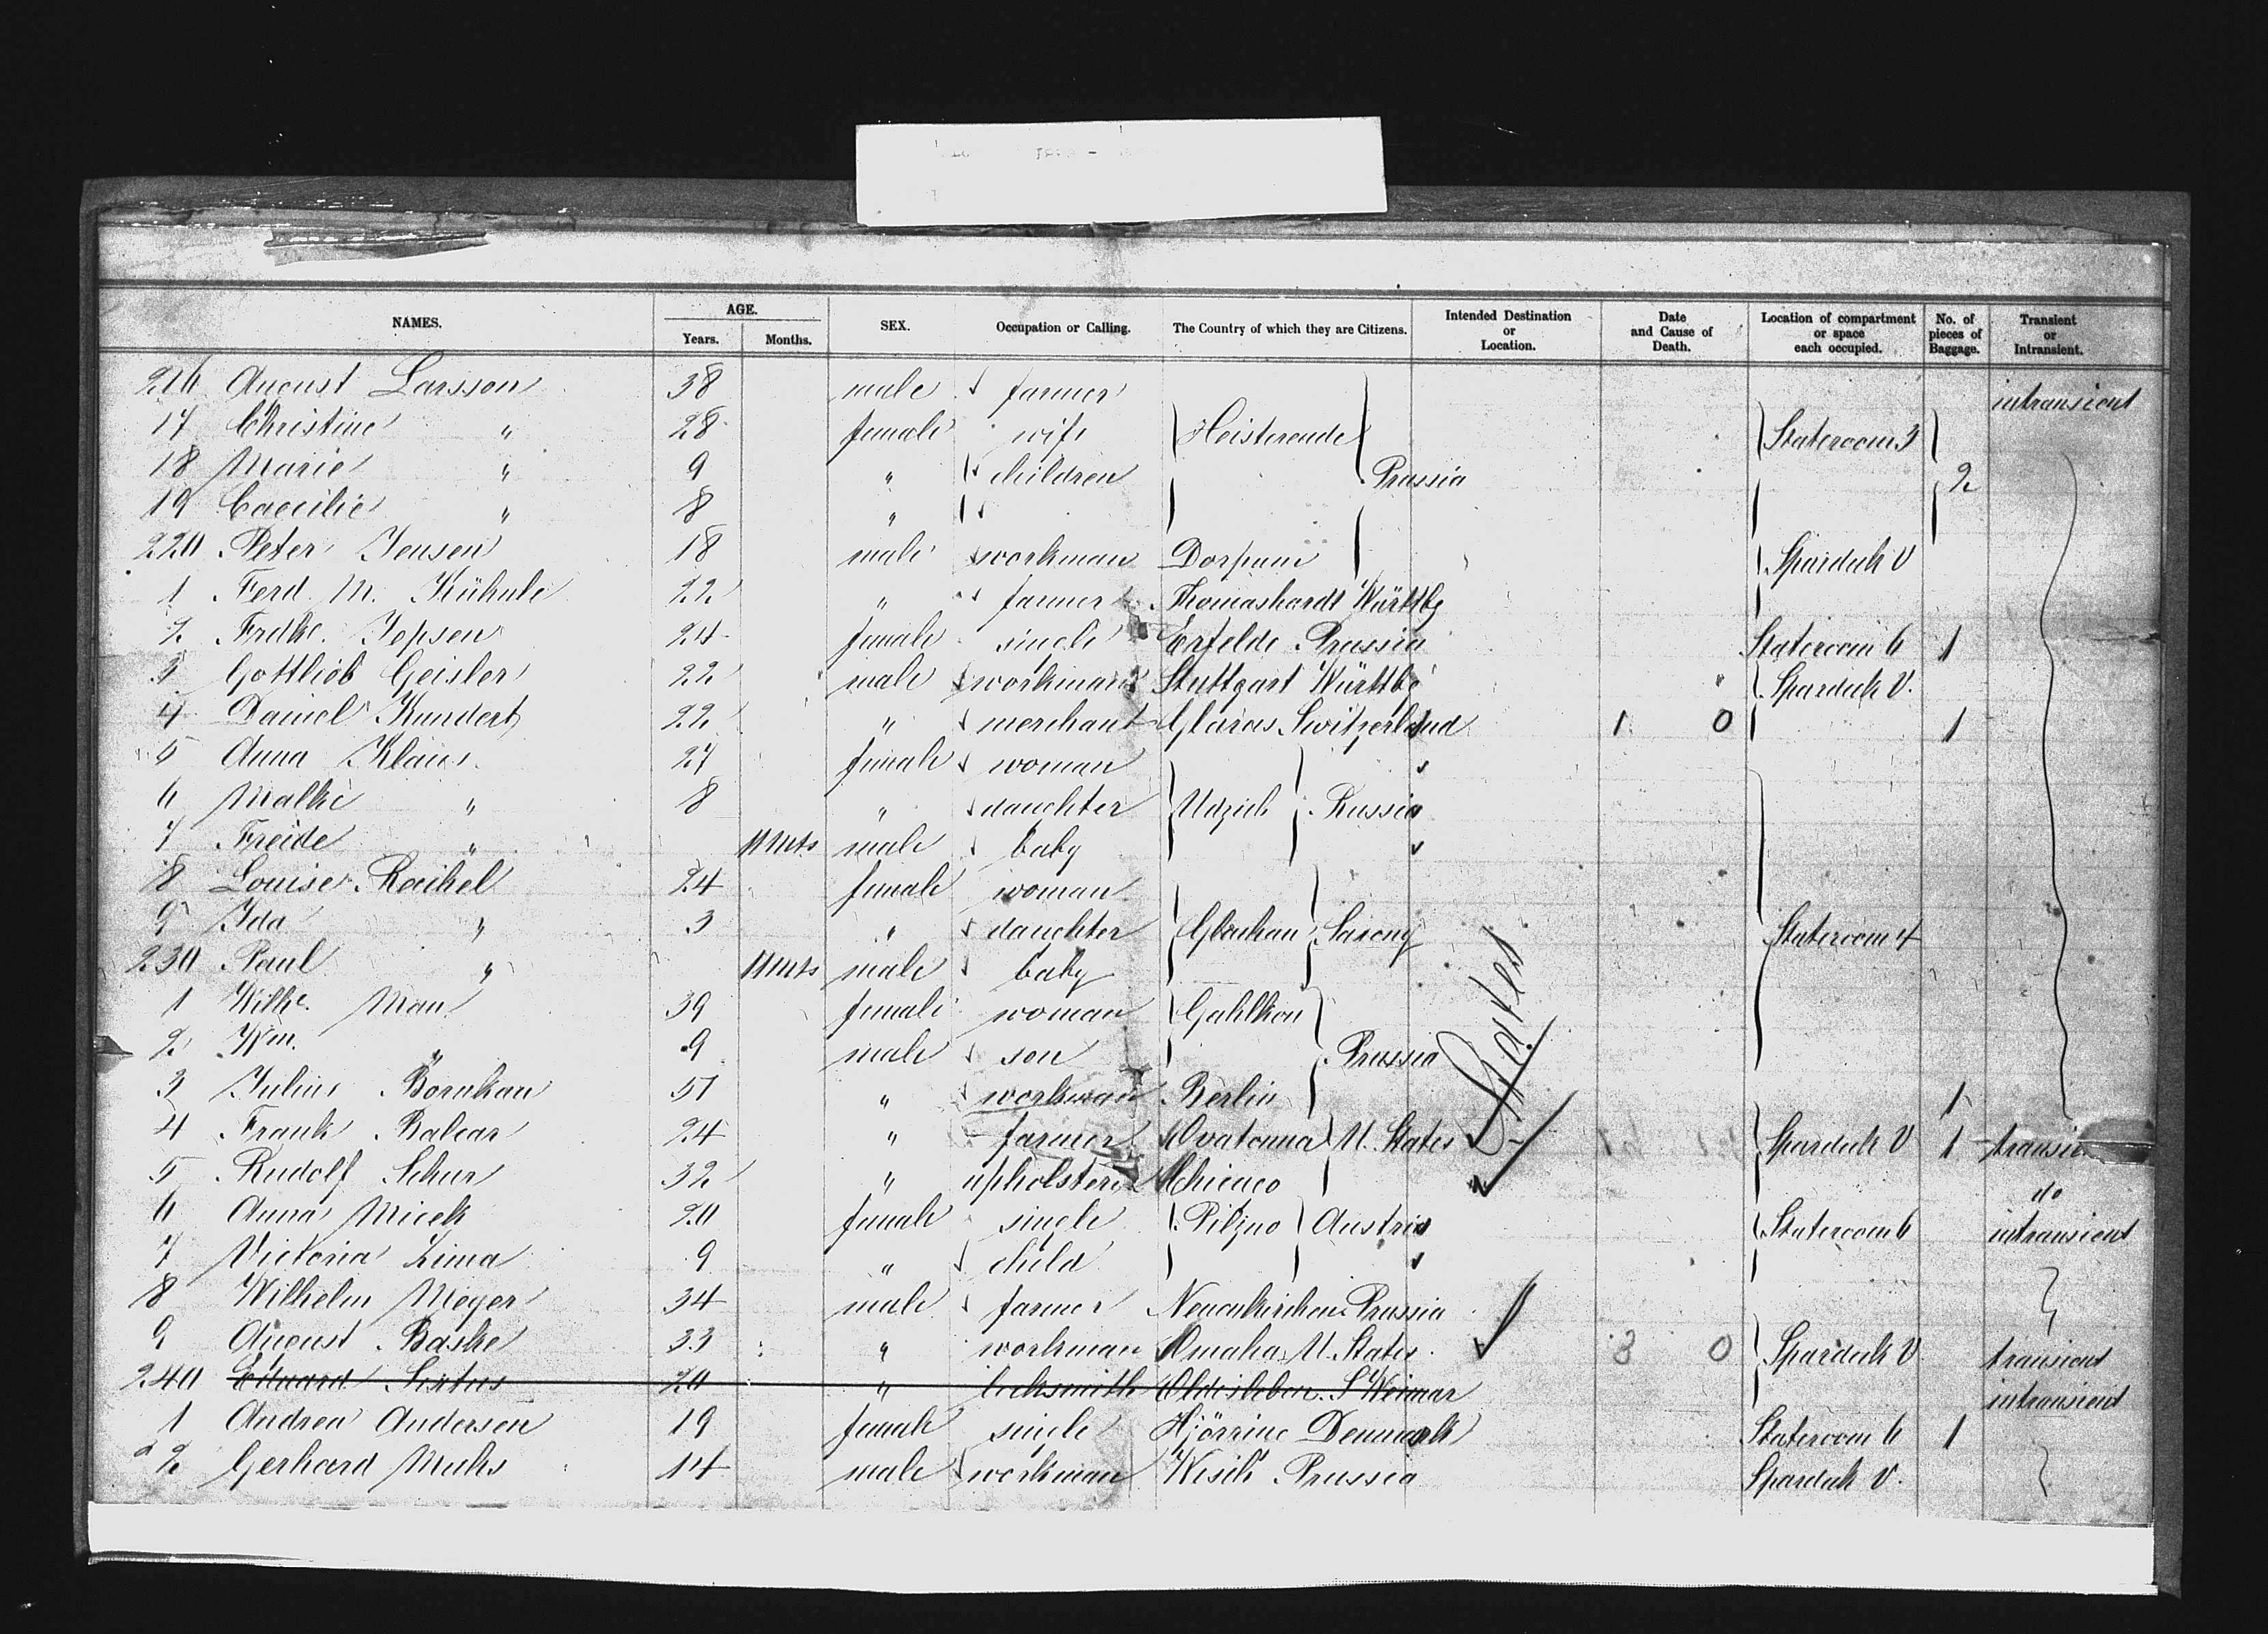 NAMES. AGE. Years. Months. SEX. Occupation or Calling. The Country of which they are Citizens. Intended Destination or Location. Date and Cause of Death. Location of compartment or space each occupied. No. of pieces of Baggage. Transient or Intransient.
216 August Larsson 38 male farmer intransient
17 Christine " 28 female wife Heisterende Stateroom 3
18 Marie " 9 " children Prussia 2
19 Caecilie " 8 "
220 Peter Jensen 18 male workman Dorpum Spardeck V
1 Ferd. M. Kühnle 22 " farmer Thomashardt Württbg
2 Frdke. Jepsen 24 female single Erfelde Prussia Stateroom 6 1
3 Gottlieb Geisler 22 male workman Stuttgart Württbg Spardeck V.
4 Daniel Kundert 22 " merchant Glarus Switzerland 1 0 1
5 Anna Klaus 27 female woman
6 Malke " 8 " daughter Russia
7 Freide " 11 Mts male baby
8 Louise Reichel 24 female woman
9 Ida " 3 " daughter Glauchau Saxony Stateroom 4
230 Paul " 11 Mts male baby
1 Wilhe. Man 39 female woman Gahlkow
2 Wm. " 9 male son Prussia
3 Julius Bornkau 51 " workman Berlin 1
4 Frank Balcar 24 " farmer Owatonna U. States Spardeck V 1 transient
5 Rudolf Schur 32 " upholsterer Chicago do
6 Anna Micek 20 female single Pilzno Austria Stateroom 6 intransient
7 Victoria Zima 9 " child
8 Wilhelm Meyer 34 male farmer Neuenkirchen Prussia
9 August Baske 33 " workman Omaha U. States. 3 0 Spardeck V transient
240 Eduard Sixtus 20 " locksmith Oldisleben S Weimar intransient
1 Andrea Andersen 19 female single Hjörring Denmark Stateroom 6 1
2 Gerhard Muhs 14 male workman Prussia Spardeck V.